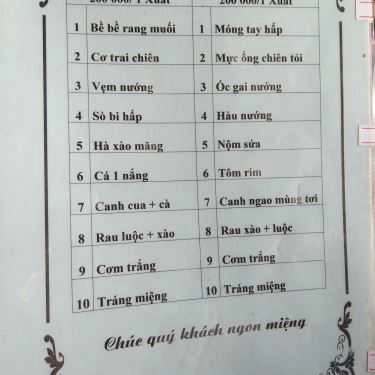 200 000/1 Xuất 200 000/1 Xuất
1 Bề bề rang muối 1 Móng tay hấp
2 Cơ trai chiên 2 Mực ống chiên tỏi
3 Vẹm nướng 3 Óc gai nướng
4 Sò bi hấp 4 Hàu nướng
5 Hà xào măng 5 Nộm sứa
6 Cá 1 nắng 6 Tôm rim
7 Canh cua + cà 7 Canh ngao mùng tơi
8 Rau luộc + xào 8 Rau xào + luộc
9 Cơm trắng 9 Cơm trắng
10 Tráng miệng 10 Tráng miệng
Chúc quý khách ngon miệng